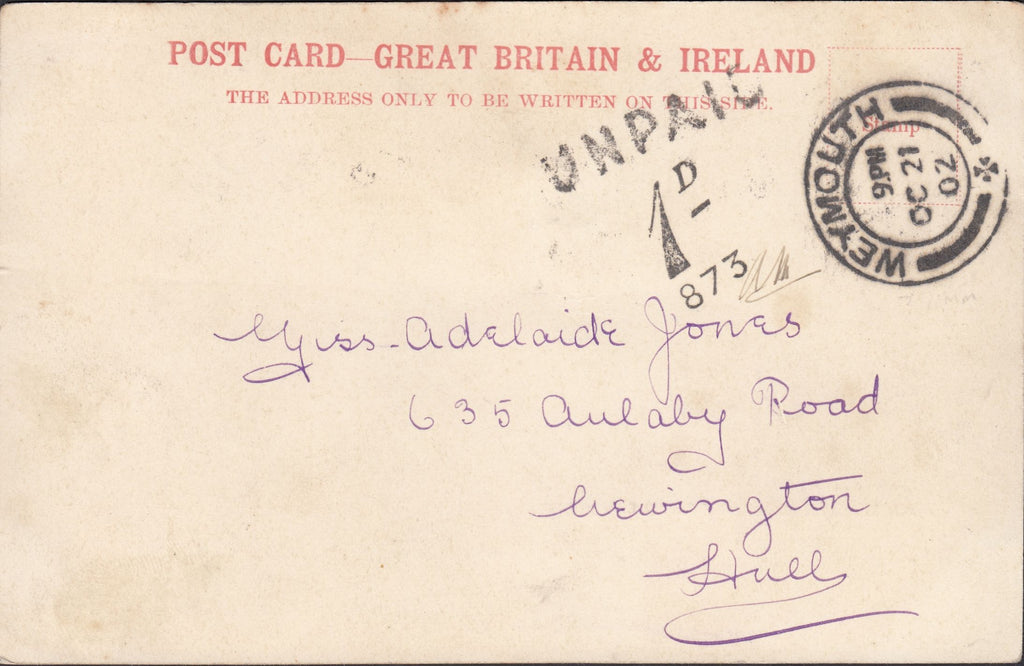 POST CARD—GREAT BRITAIN & IRELAND
THE ADDRESS ONLY TO BE WRITTEN ON THIS SIDE.
Stamp
UNPAID
1D
873
WEYMOUTH
9 PM
OC 21
02
Miss. Adelaide Jones
635 Anlaby Road
Newington
Hull